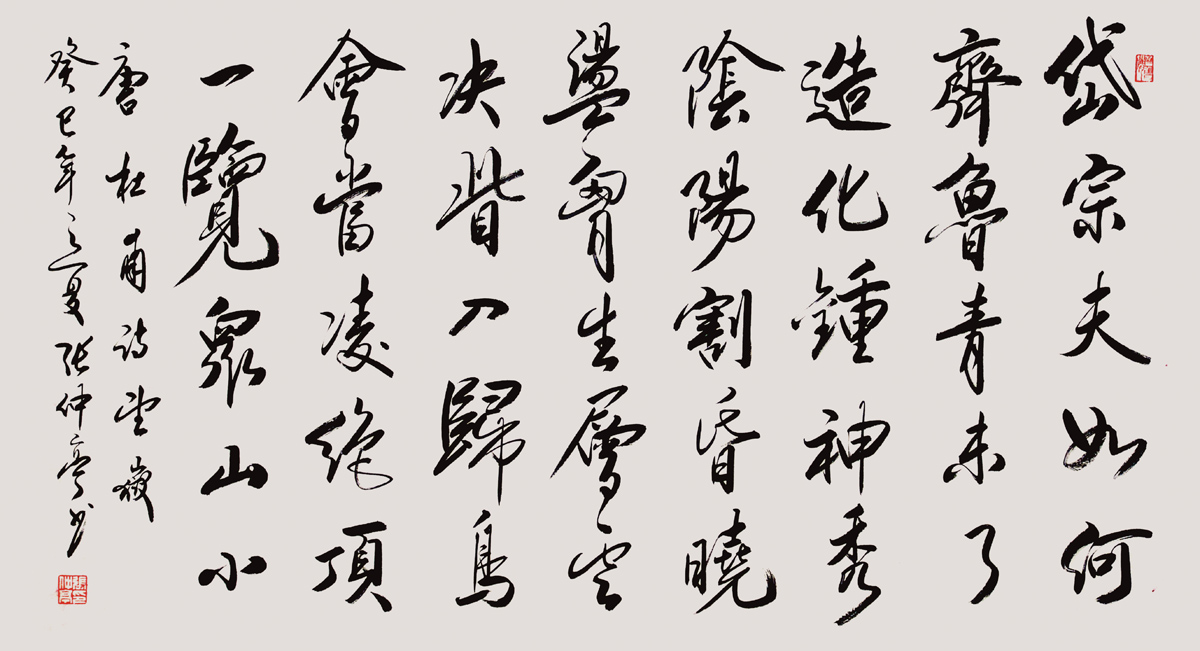 岱宗夫如何
齊魯青未了
造化鍾神秀
陰陽割昏曉
盪胷生層云
决眥入歸鳥
會當凌絶頂
一覽眾山小
唐杜甫詩望嶽
癸巳年之夏張仲亭书